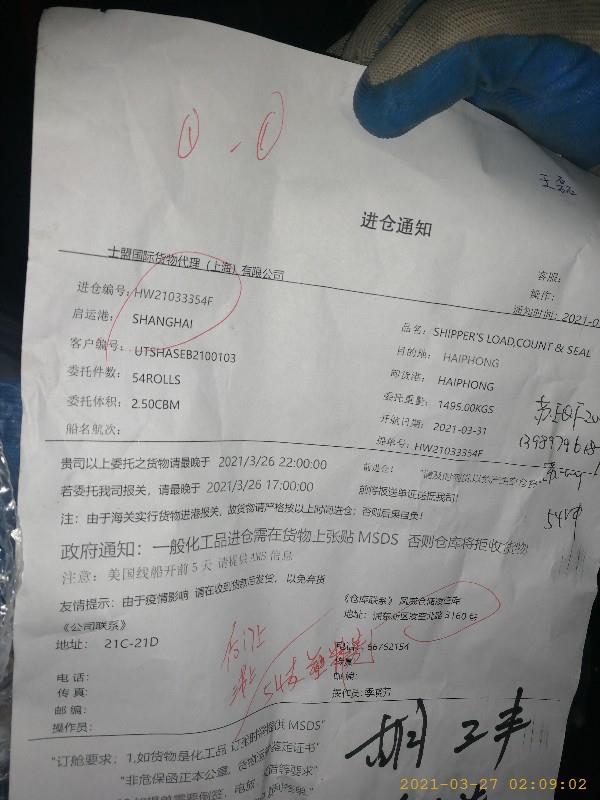 ① - ①
进仓通知
士盟国际货物代理（上海）有限公司
客服：
操作：
通知时间：2021-0
进仓编号：HW21033354F
启运港： SHANGHAI
客户编号： UTSHASEB2100103
委托件数： 54ROLLS
委托体积： 2.50CBM
船名航次：
品名： SHIPPER'S LOAD,COUNT & SEAL
目的地： HAIPHONG
卸货港： HAIPHONG
委托重量： 1495.00KGS
开航日期： 2021-03-31
提单号：HW21033354F
贵司以上委托之货物请最晚于 2021/3/26 22:00:00
若委托我司报关，请最晚于 2021/3/26 17:00:00
注：由于海关实行货物进港报关，故货物请严格按以上时间进仓；否则后果自负！
政府通知：一般化工品进仓需在货物上张贴 MSDS 否则仓库将拒收货物
注意：美国线船开前 5 天 请提供AMS 信息
友情提示：由于疫情影响 请在收到货物后发货，以免弃货
《公司联系》
地址： 21C-21D
电话：
传真：
邮编：
操作员：
《仓库联系》
地址：浦东新区凌空北路 3160 号
电话：66762154
邮编：
操作员：季晓芳
54支
"订舱要求：1.如货物是化工品
MSDS"
"非危保函正本公章，
2021-03-27 02:09:02